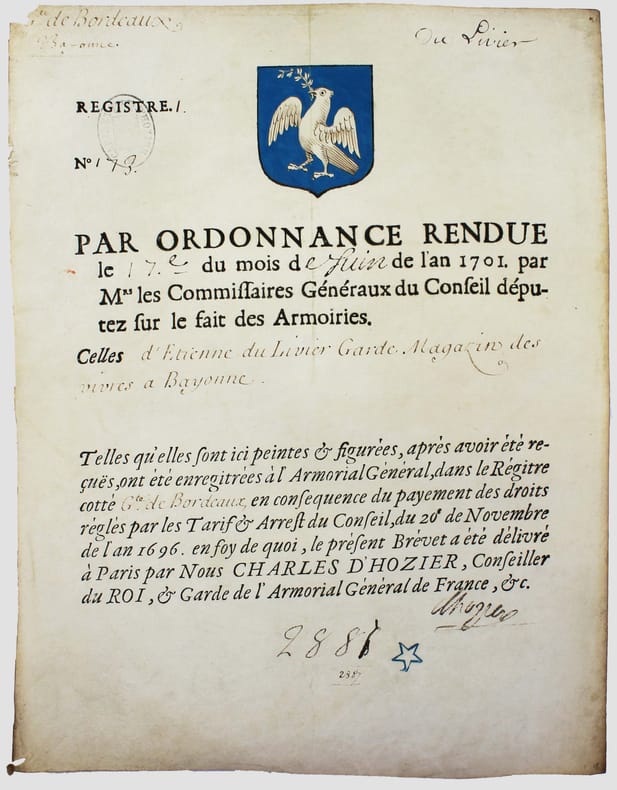 G.té de Bordeaux
Bayonne.
du Livier
REGISTRE. 1.
N° 173.
PAR ORDONNANCE RENDUE
le 17.e du mois de Juin de l'an 1701. par
Mrs les Commiſſaires Généraux du Conſeil députez
ſur le fait des Armoiries.
Celles d'Etienne du Livier Garde Magazin des
vivres a Bayonne.
Telles qu'elles ſont ici peintes & figurées, après avoir été reçuës,
ont été enregitrées à l'Armorial Général, dans le Régitre
cotté G.té de Bordeaux, en conſequence du payement des droits
réglés par les Tarif & Arreſt du Conſeil, du 20e de Novembre
de l'an 1696. en foy de quoi, le préſent Brévet a été délivré
à Paris par Nous CHARLES D'HOZIER, Conſeiller
du ROI, & Garde de l'Armorial Général de France, &c.
dhozier
2887
2887